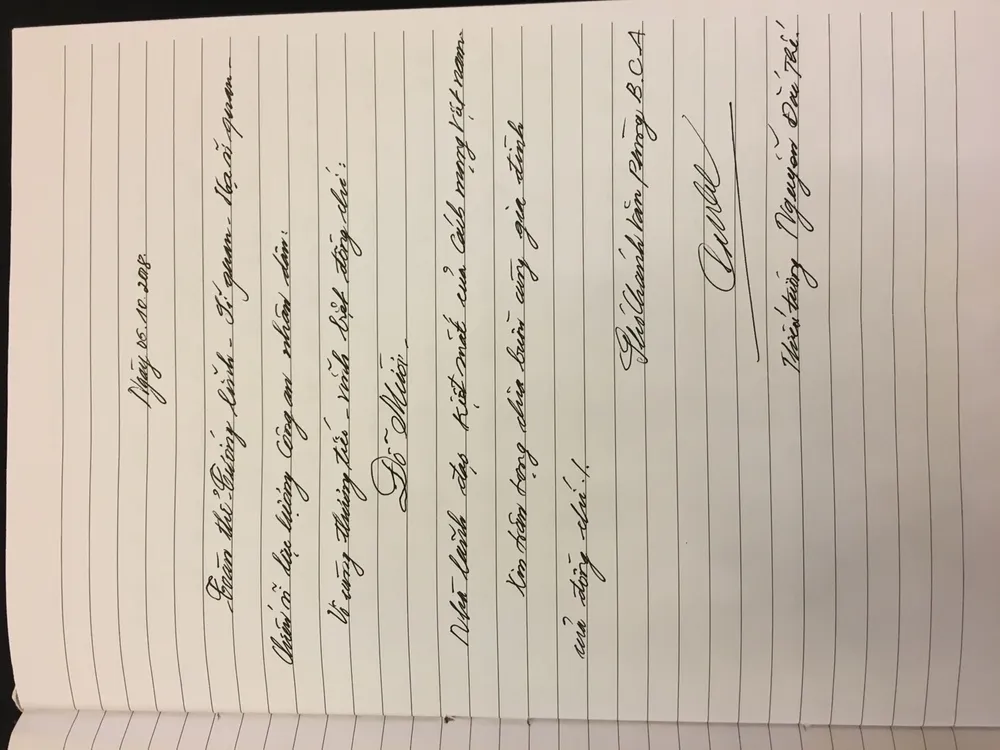 Ngày 06.10.2018
Toàn thể Tướng lĩnh - Sĩ quan - Hạ sĩ quan -
Chiến sĩ lực lượng Công an nhân dân:
Vô cùng thương tiếc - vĩnh biệt đồng chí:
Đỗ Mười
Nhà lãnh đạo kiệt xuất của Cách mạng Việt nam
Xin trân trọng chia buồn cùng gia đình
của đồng chí!
Phó Chánh Văn phòng B.C.A
Thiếu tướng Nguyễn Đắc Thế